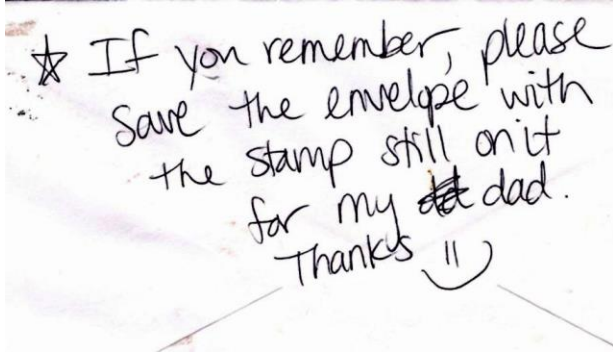 ☆ If you remember, please
save the envelope with
the stamp still on it
for my dad.
Thanks =)